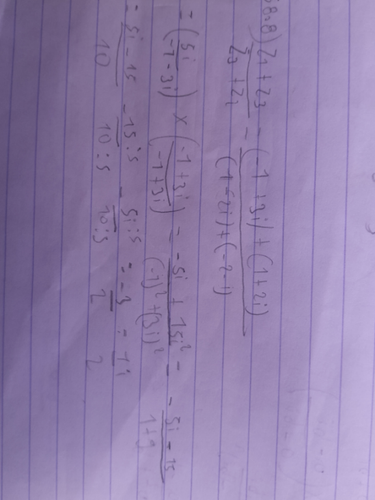 8.8) Z₁ + Z₃ / Z₃ + Z₁ = (-1+3i) + (1+2i) / (1-2i) + (-2-i)
= (5i / -1-3i) × (-1+3i / -1+3i) = -5i + 15i² / (-1)² + (3i)² = -5i - 15 / 1+9
= 5i - 15 / 10 = 15:5 / 10:5 - 5i:5 / 10:5 = -3 / 2 - 1i / 2